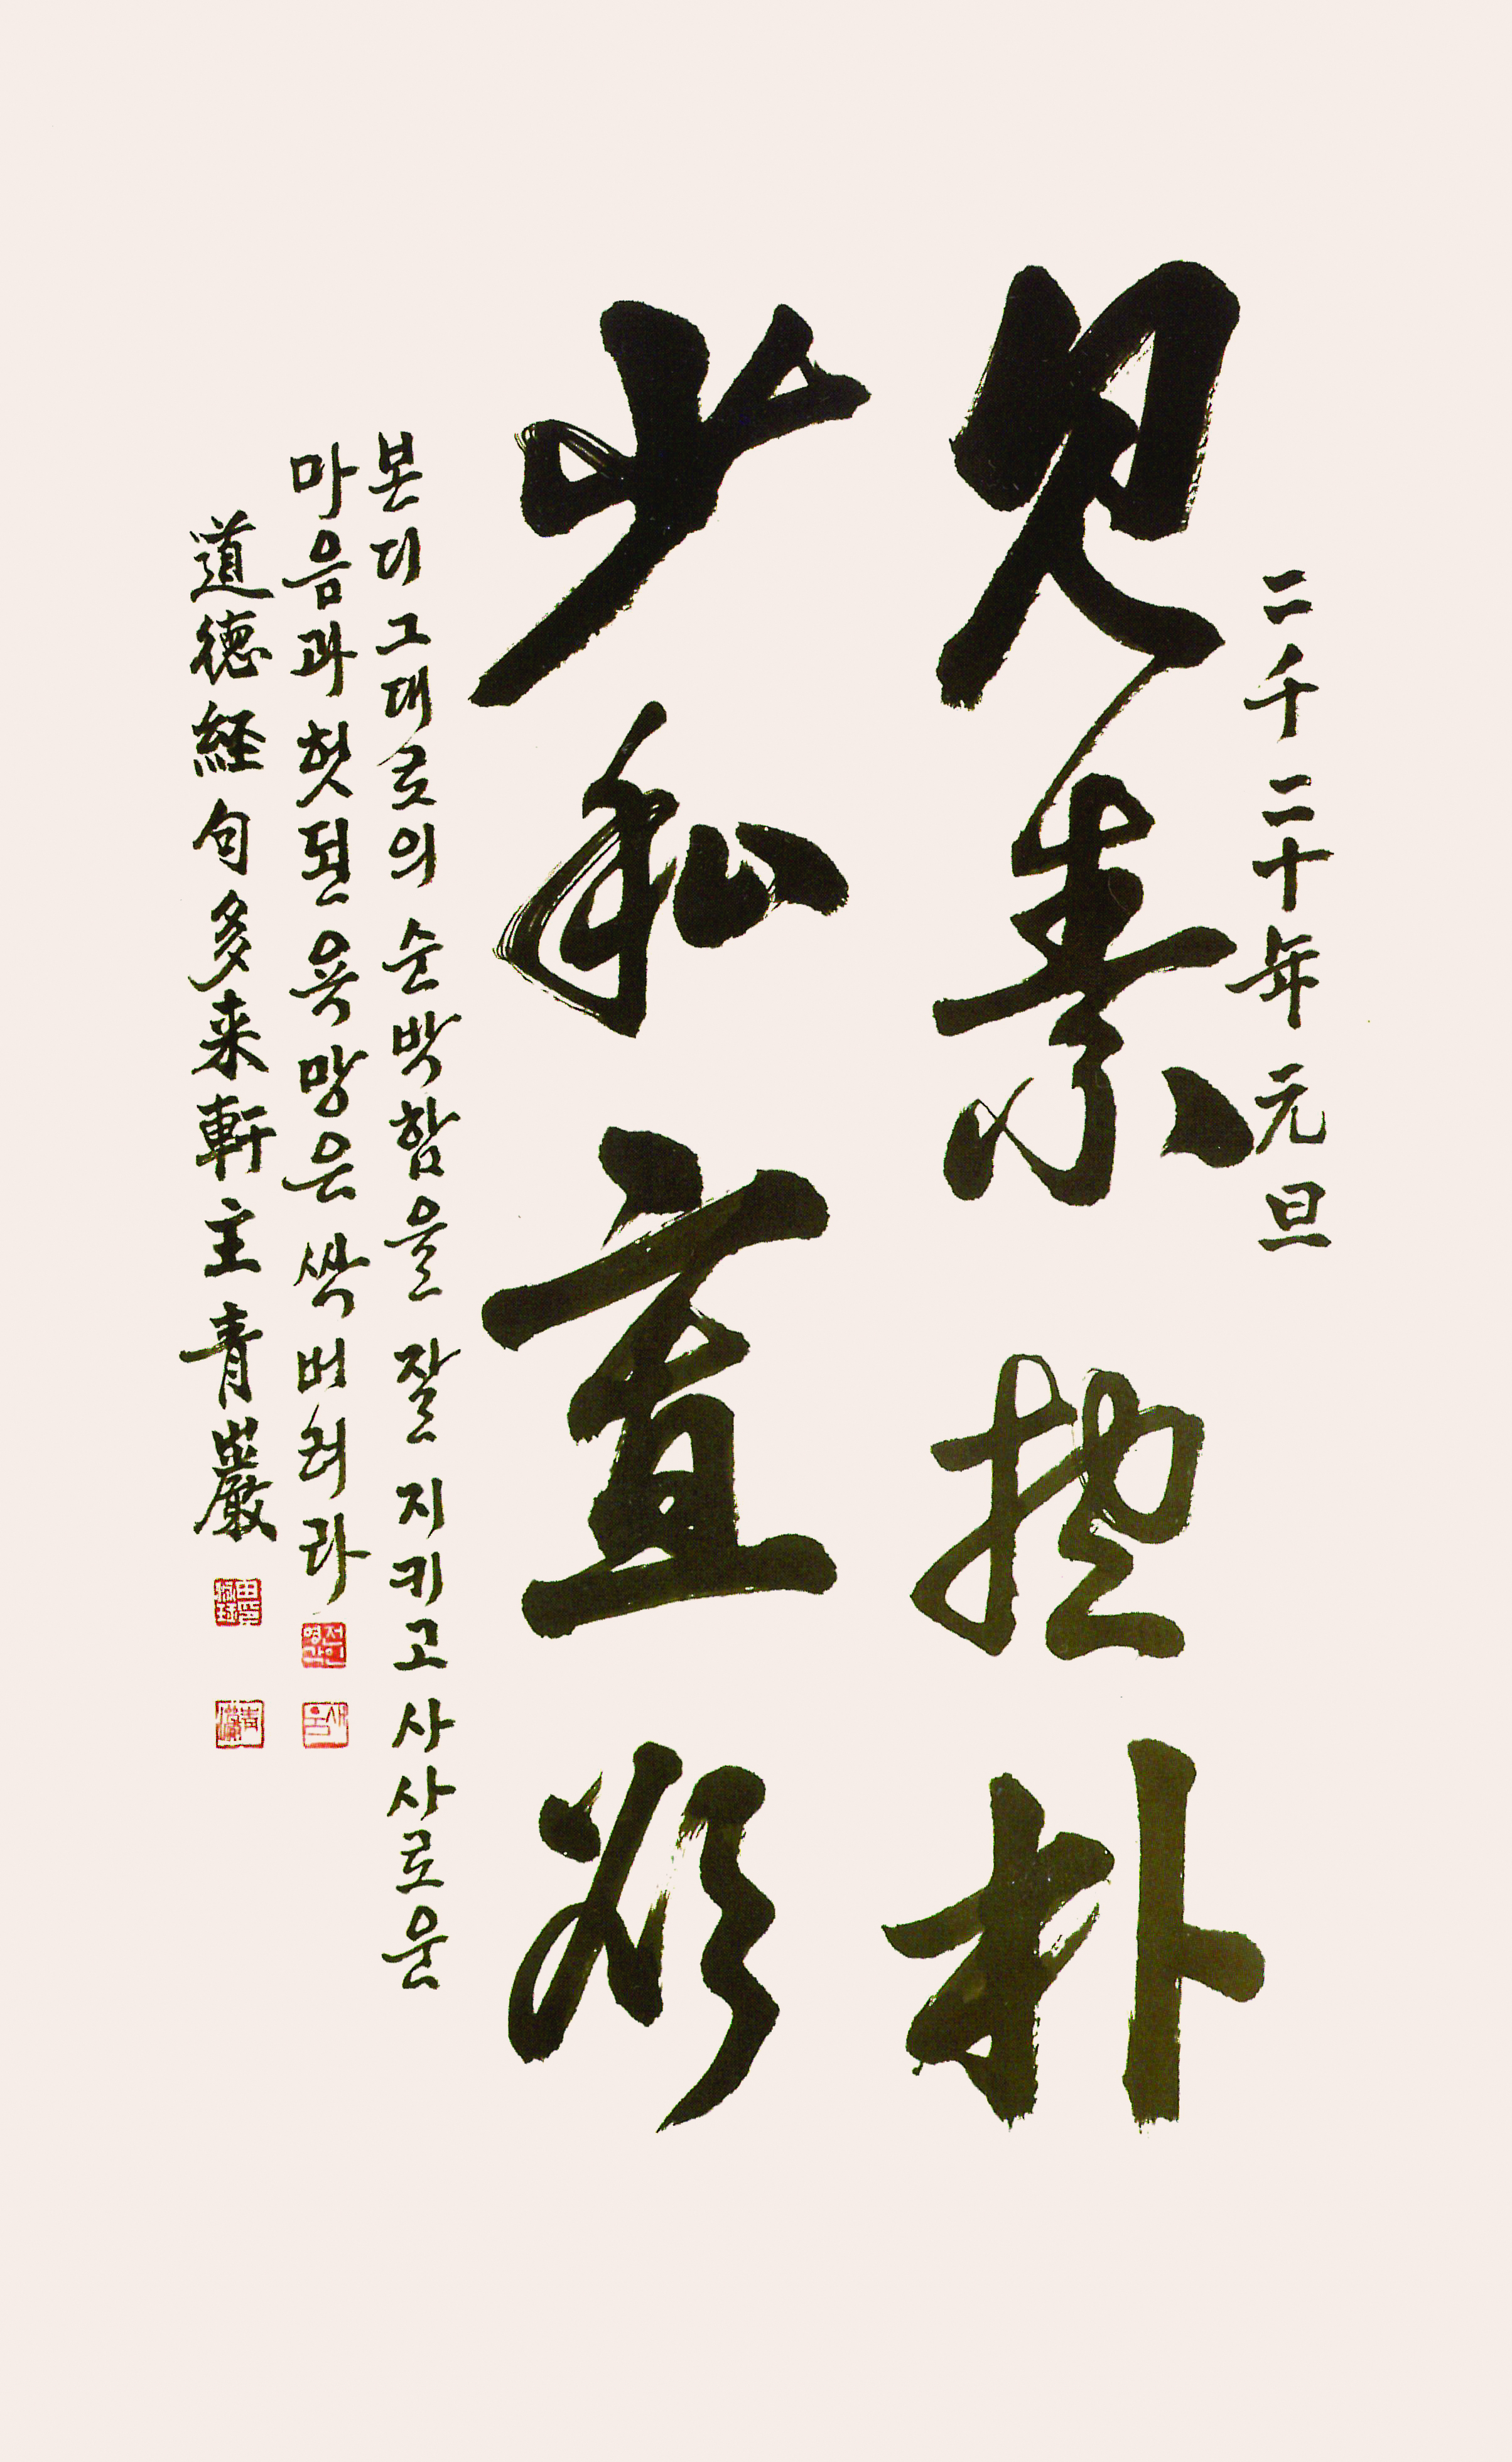 二千二十年 元旦
見素抱朴
少私寡欲
본디 그대로의 순박함을 잘 지키고 사사로운
마음과 헛된 욕망은 싹 버려라
道德経句 多来軒主 青巖